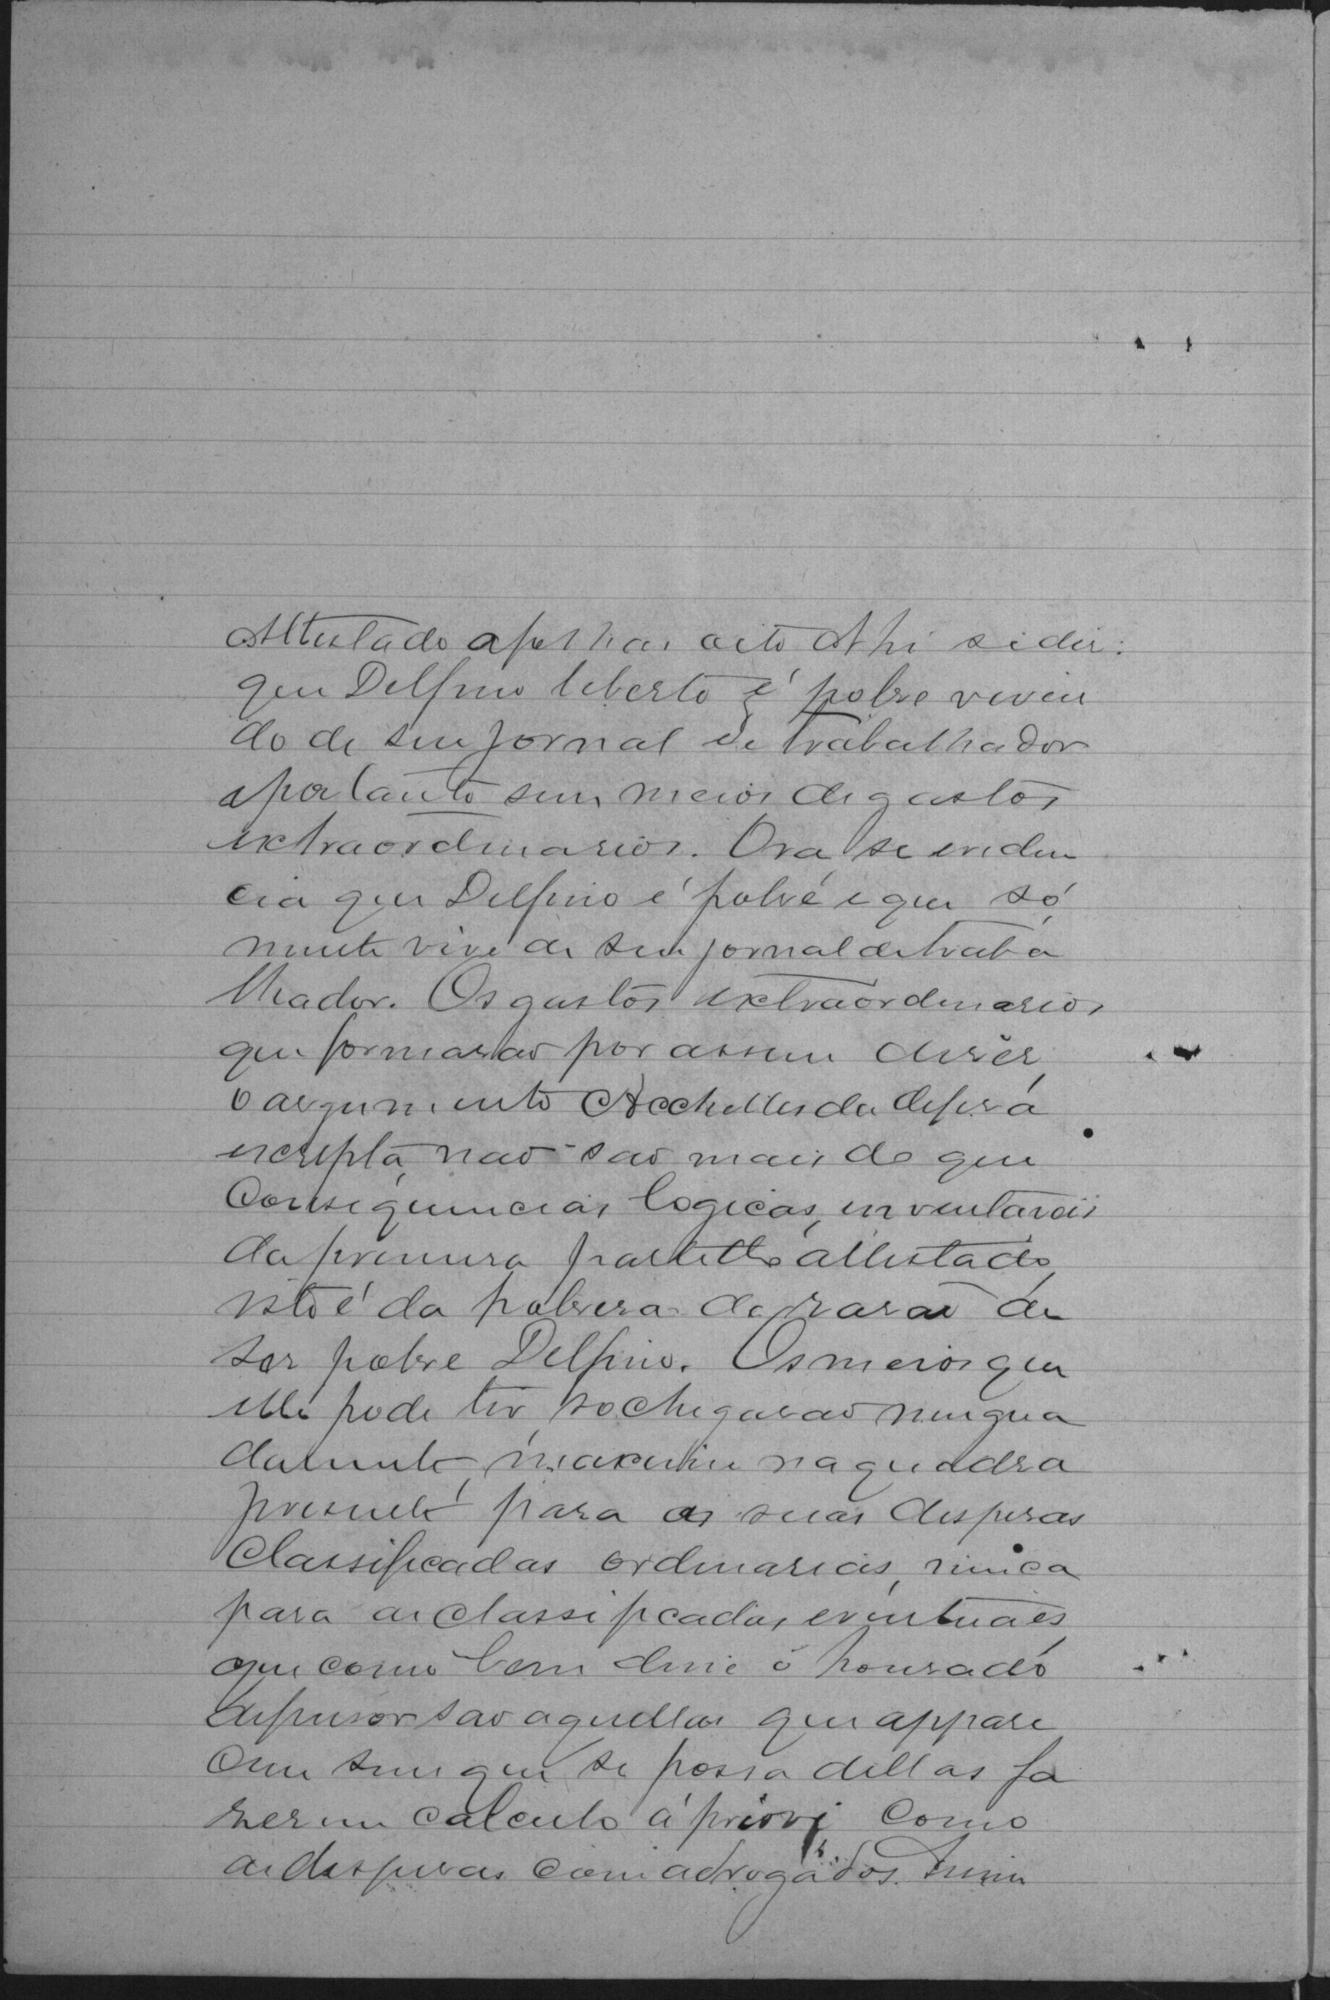 Attestado a folhas oito Ahi se diz:
que Delfino liberto é pobre viven
do de seu jornal de trabalhador
e portanto sem meios de gastos
extraordinarios. Ora se eviden
cia que Delfino é pobre e que só
mente vive de seu jornal de traba
lhador. Os gastos extraordinarios
que formarao por assim diser,
o argumento Acchilles da defesa
escripta, nao sao mais do que
consequencias logicas, inventaveis
da primeira parte do attestado,
isto é da pobresa da rasao de
ser pobre Delfino. Os meios que
elle pode ter, so chegarao mingua
damente, maxime na quadra
presente, para as suas despesas
classificadas ordinarias, nunca
para as classificadas eventuaes
que como bem disse o honrado
defensor sao aquellas que appare
cem sem que se possa dellas fa
zer um calculo á priori como
as despesas com advogados.